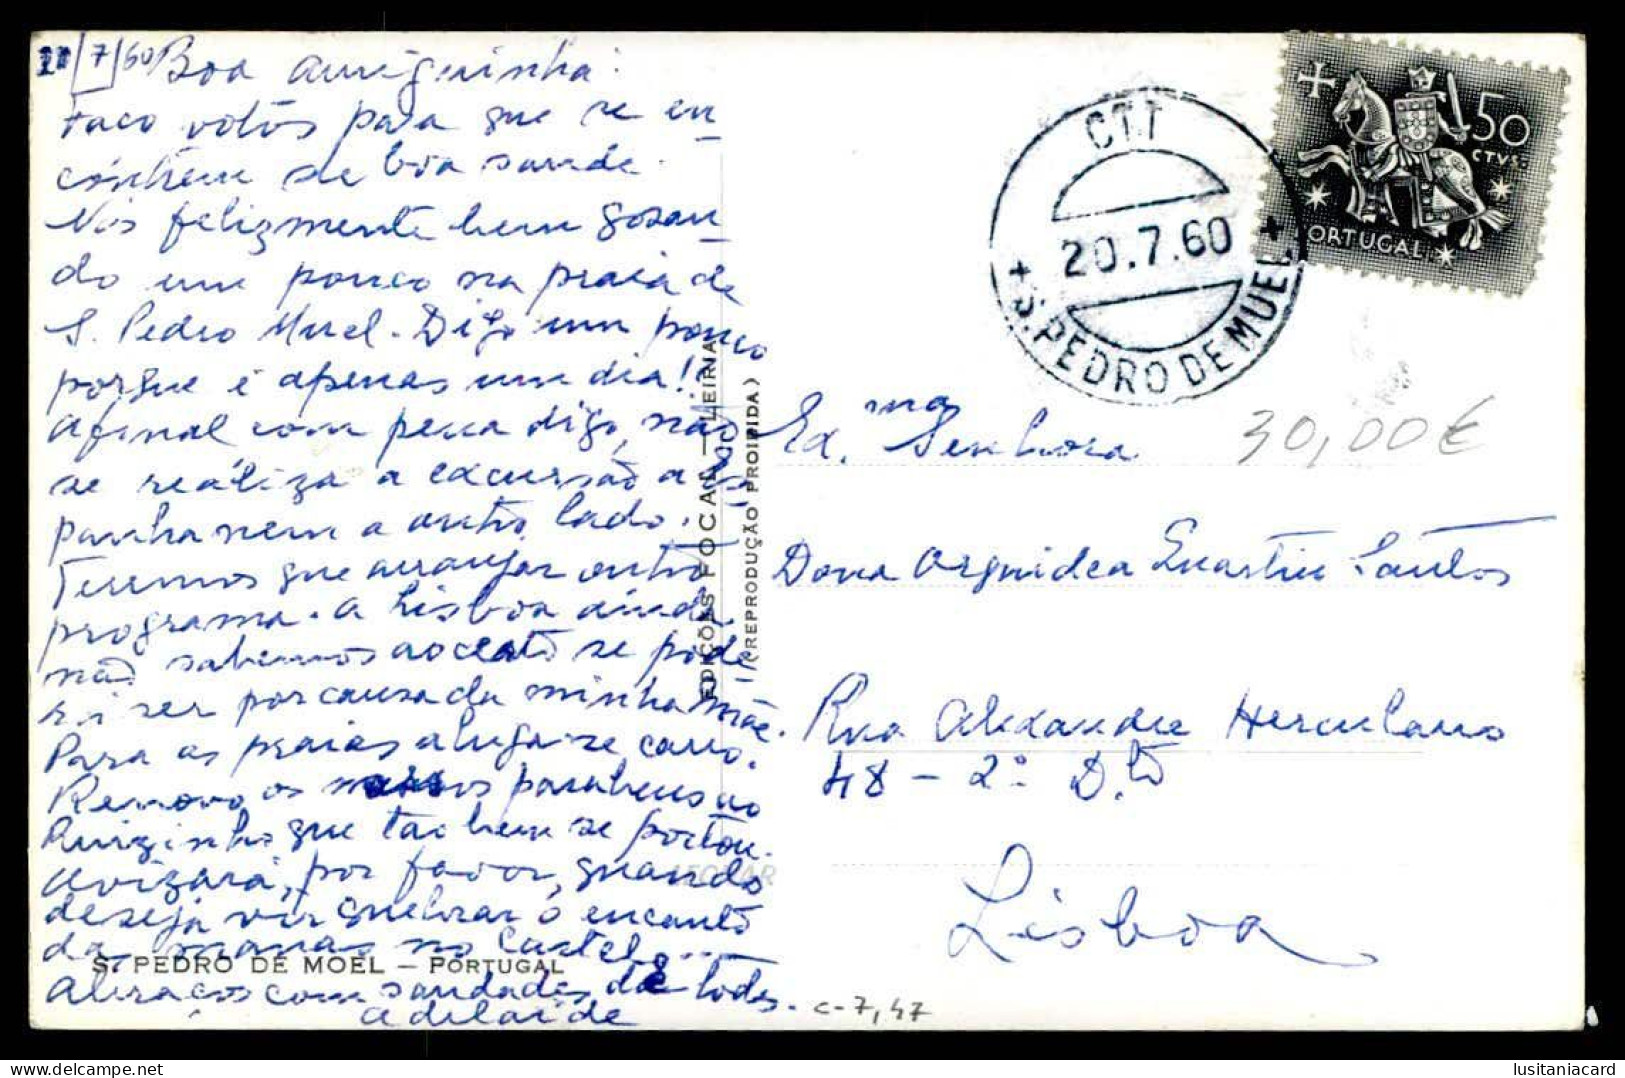 /7/60 Boa amiguinha:
Faço votos para que se en
contrem de boa saude.
Nós felizmente bem gosan
do um pouco na praia de
S. Pedro Muel. Digo um pouco
porque é apenas um dia!?
Afinal com pena digo, não
se realiza a excursão a Es
panha nem a outro lado.
Teremos que arranjar outro
programa. A Lisboa ainda
não sabemos ao certo se pode
rá ser por causa da minha mãe.
Para as praias aluga-se carro.
Renovo os nossos parabens ao
Ruizinho que tão bem se portou.
Avizará, por favor, quando
deseja vir quebrar o encanto
da no Castelo...
Abraços com saudades de todos.
Adelaide
S. PEDRO DE MOEL — PORTUGAL
EDIÇÕES FOCAL — LEIRIA
(REPRODUÇÃO PROIBIDA)
CTT
20.7.60
S. PEDRO DE MUEL
50
CTVS.
PORTUGAL
30,00€
Ex.ma Senhora
Dona Orquidea Santos
Rua Alexandre Herculano
48 - 2º D.to
Lisboa
c-7,47
lusitaniacard